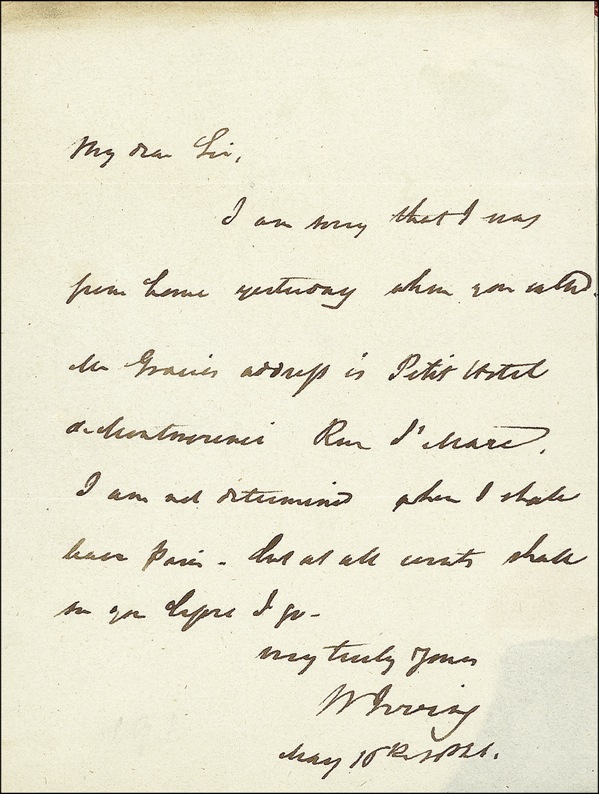 My dear Sir,
I am sorry that I was
from home yesterday when you called.
Mr Gracie's address is Petit Hotel
de Montmorenci Rue St Marc.
I am not determined when I shall
leave Paris - but at all events shall
see you before I go -
very truly yours
W Irving
May 10th